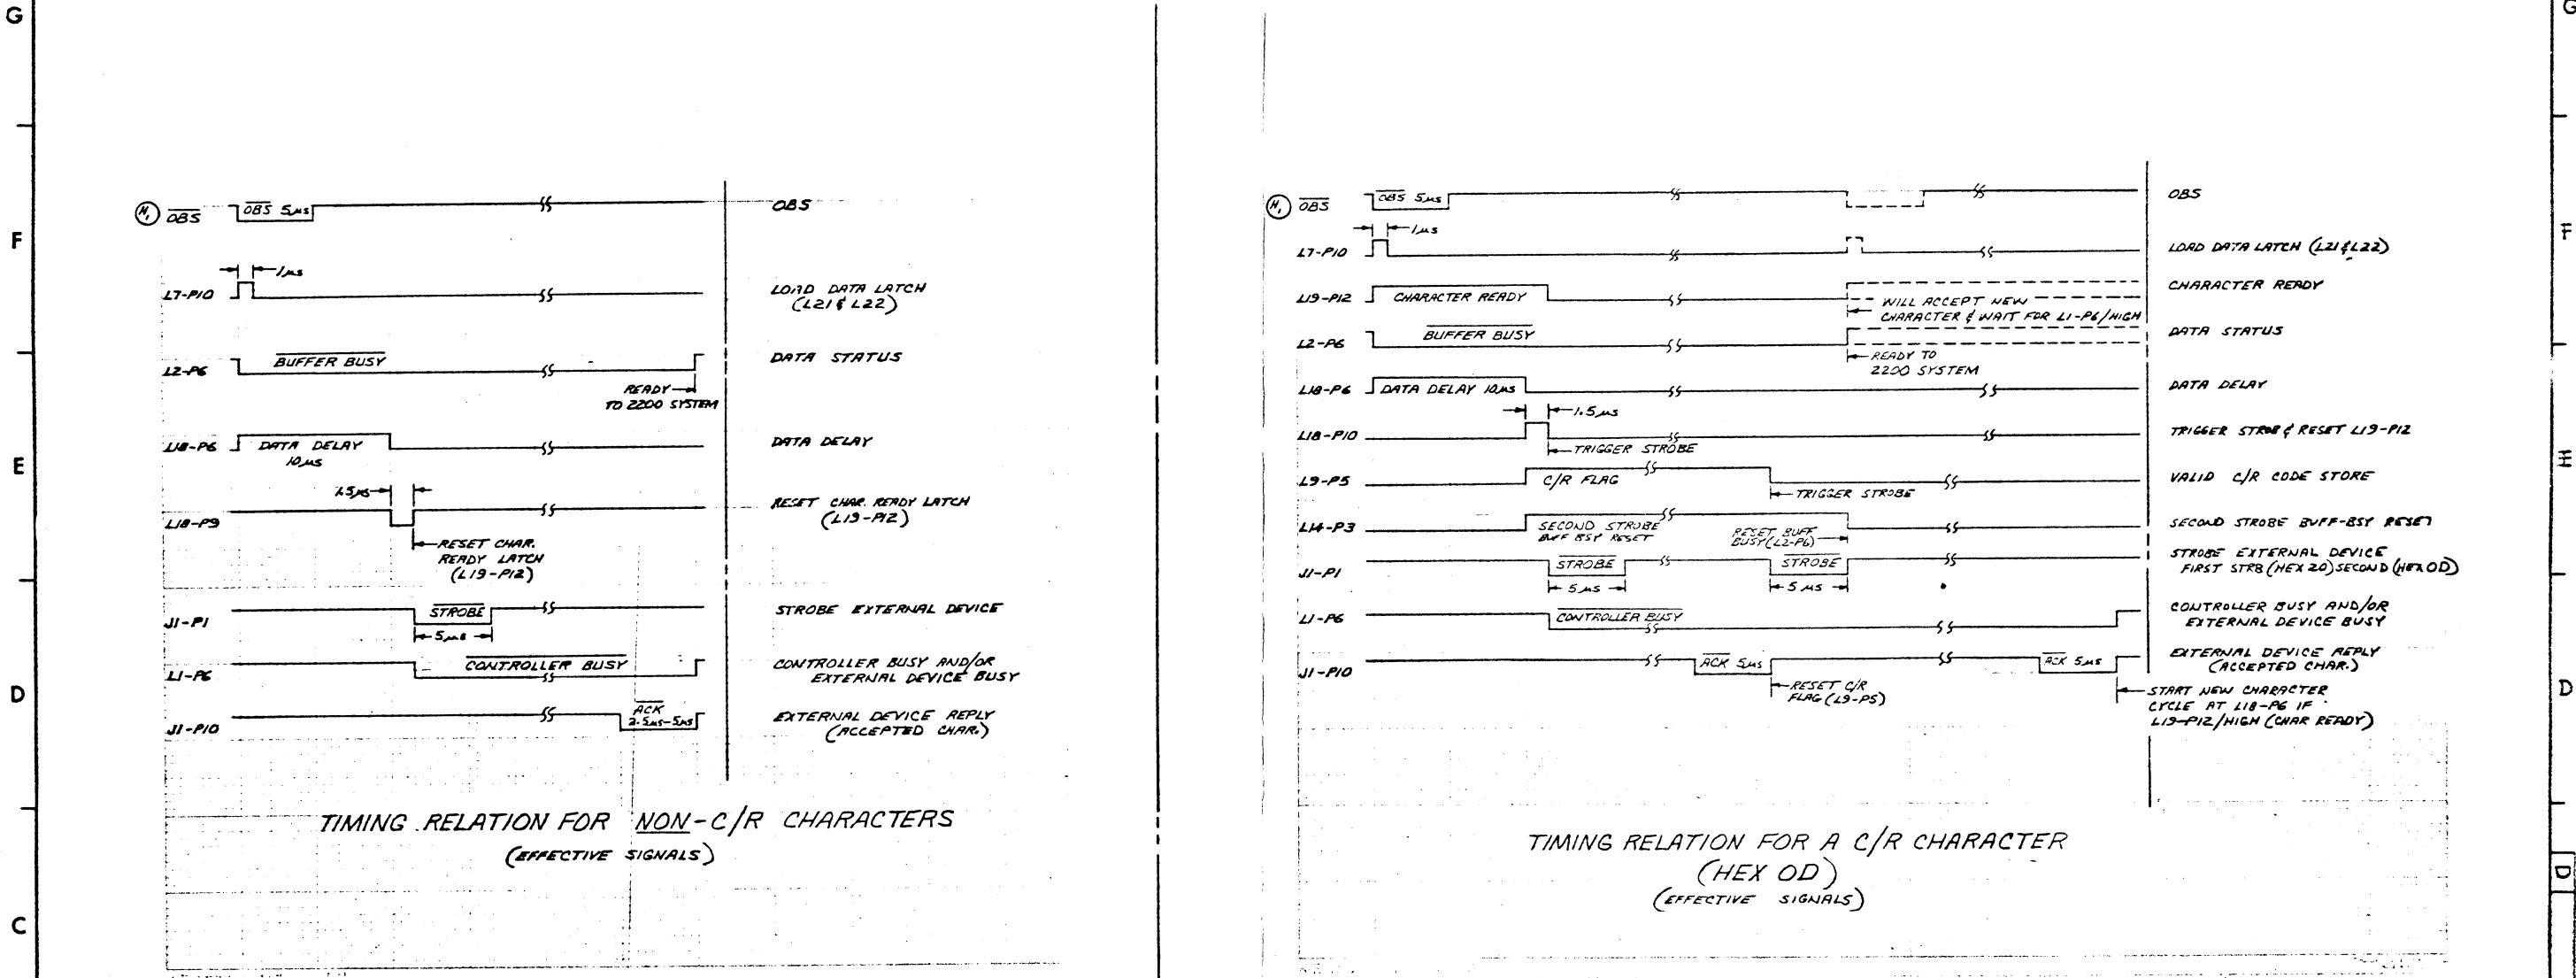 G
F
E
D
C
G
F
E
D
D
N, OBS
OBS 5µs
OBS
L7-P10
1µs
LOAD DATA LATCH
(L21 & L22)
L2-P6
BUFFER BUSY
DATA STATUS
READY
TO 2200 SYSTEM
L18-P6
DATA DELAY
10µs
DATA DELAY
1.5µs
L18-P9
RESET CHAR. READY LATCH
(L19-P12)
RESET CHAR.
READY LATCH
(L19-P12)
J1-P1
STROBE
5µs
STROBE EXTERNAL DEVICE
L1-P6
CONTROLLER BUSY
CONTROLLER BUSY AND/OR
EXTERNAL DEVICE BUSY
J1-P10
ACK
2.5µs-5µs
EXTERNAL DEVICE REPLY
(ACCEPTED CHAR.)
TIMING RELATION FOR NON-C/R CHARACTERS
(EFFECTIVE SIGNALS)
N, OBS
OBS 5µs
OBS
L7-P10
1µs
LOAD DATA LATCH (L21 & L22)
L19-P12
CHARACTER READY
CHARACTER READY
WILL ACCEPT NEW
CHARACTER & WAIT FOR L1-P6/HIGH
L2-P6
BUFFER BUSY
DATA STATUS
READY TO
2200 SYSTEM
L18-P6
DATA DELAY 10µs
DATA DELAY
1.5µs
L18-P10
TRIGGER STROB & RESET L19-P12
TRIGGER STROBE
L9-P5
C/R FLAG
VALID C/R CODE STORE
TRIGGER STROBE
L14-P3
SECOND STROBE
BUFF BSY RESET
RESET BUFF
BUSY (L2-P6)
SECOND STROBE BUFF-BSY RESET
J1-P1
STROBE
STROBE
5µs
5µs
STROBE EXTERNAL DEVICE
FIRST STRB (HEX 20) SECOND (HEX OD)
L1-P6
CONTROLLER BUSY
CONTROLLER BUSY AND/OR
EXTERNAL DEVICE BUSY
J1-P10
ACK 5µs
ACK 5µs
EXTERNAL DEVICE REPLY
(ACCEPTED CHAR.)
RESET C/R
FLAG (L9-P5)
START NEW CHARACTER
CYCLE AT L18-P6 IF
L19-P12/HIGH (CHAR READY)
TIMING RELATION FOR A C/R CHARACTER
(HEX OD)
(EFFECTIVE SIGNALS)